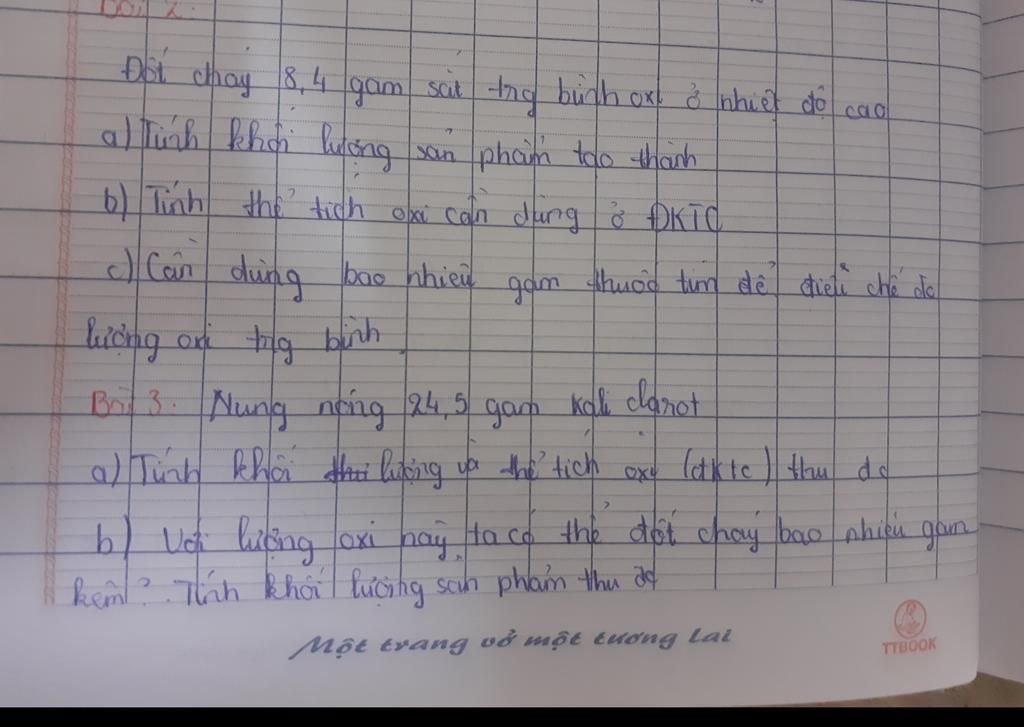 Bài 2.
Đốt cháy 8,4 gam sắt trg bình oxi ở nhiệt độ cao
a) Tính khối lượng sản phẩm tạo thành
b) Tính thể tích oxi cần dùng ở ĐKTC
c) Cần dùng bao nhiêu gam thuốc tím để điều chế đc
lượng oxi trg bình
Bài 3. Nung nóng 24,5 gam kali clarot
a) Tính khối lượng và thể tích oxy (đktc) thu đc
b) Với lượng oxi này, ta có thể đốt cháy bao nhiêu gam
kẽm? Tính khối lượng sản phẩm thu đc
Một trang vở một tương lai
TTBOOK